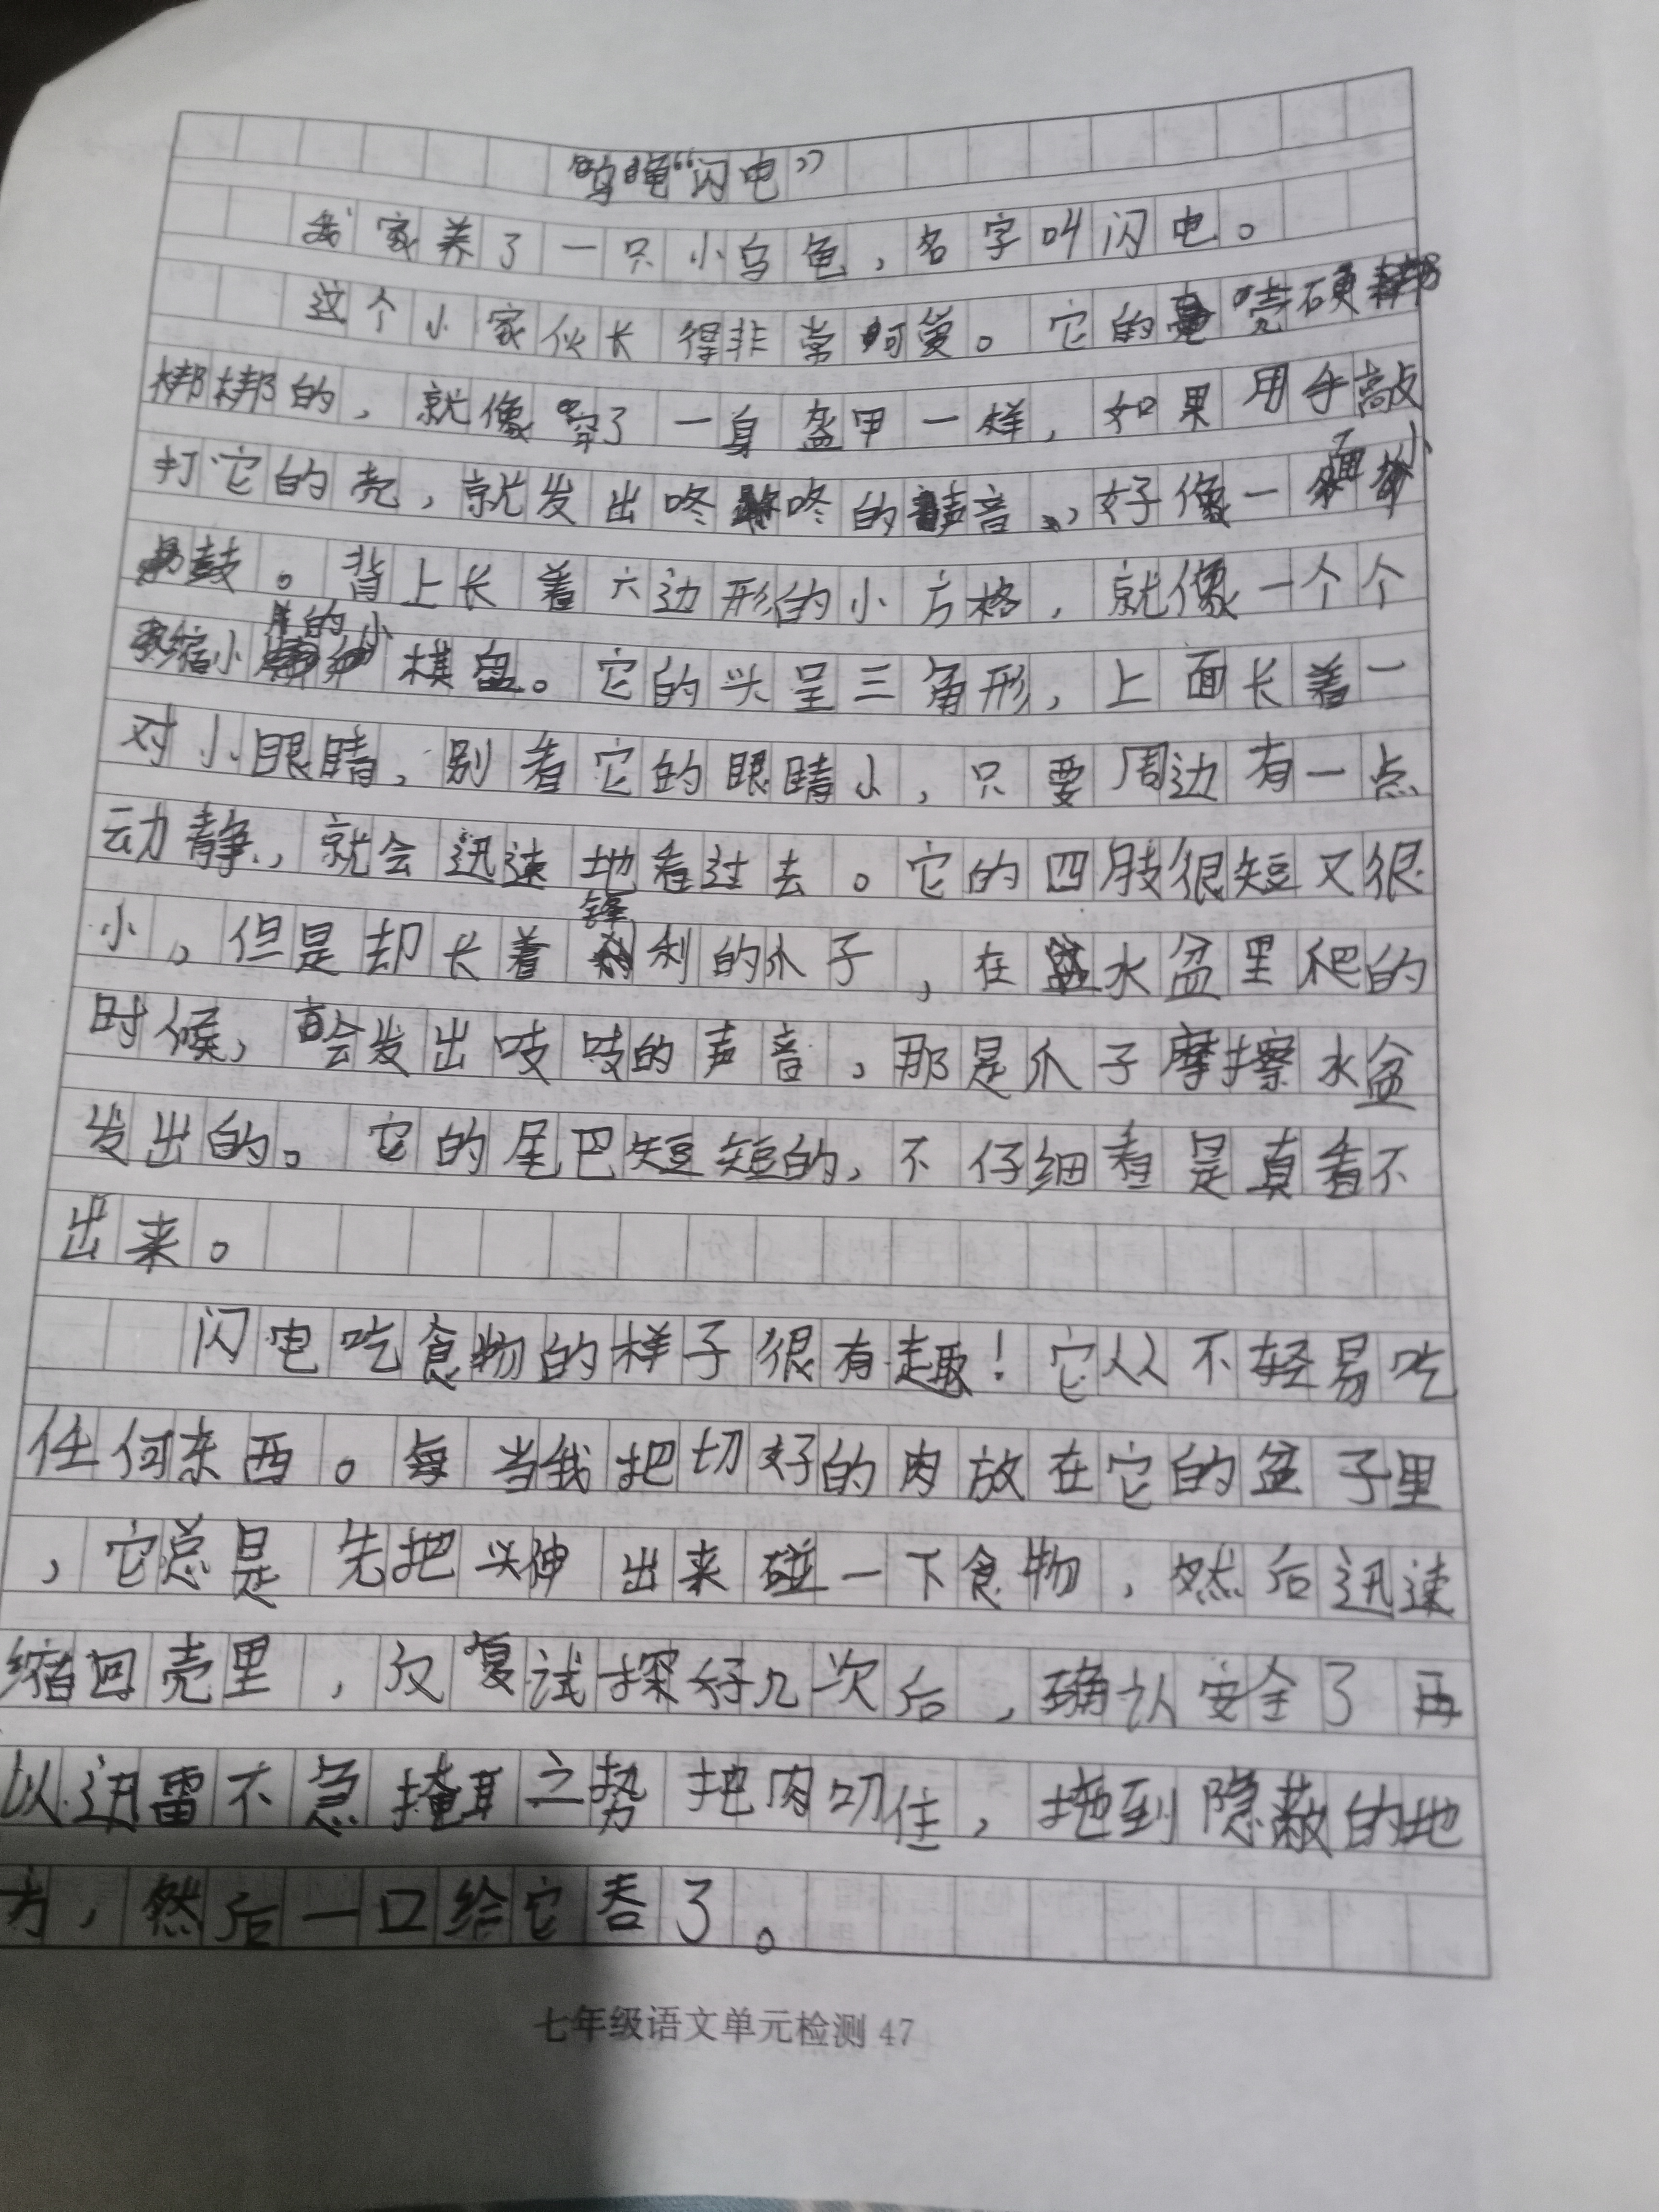 乌龟“闪电”
我家养了一只小乌龟，名字叫闪电。
这个小家伙长得非常可爱。它的壳硬
梆梆的，就像穿了一身盔甲一样，如果用手敲
打它的壳，就发出咚咚的声音，好像一面小
鼓。背上长着六边形的小方格，就像一个个
缩小片的小棋盘。它的头呈三角形，上面长着一
对小眼睛，别看它的眼睛小，只要周边有一点
动静，就会迅速地看过去。它的四肢很短又很
小，但是却长着锋利的爪子，在水盆里爬的
时候，会发出吱吱的声音，那是爪子摩擦水盆
发出的。它的尾巴短短的，不仔细看是真看不
出来。
闪电吃食物的样子很有趣！它从不轻易吃
任何东西。每当我把切好的肉放在它的盆子里
，它总是先把头伸出来碰一下食物，然后迅速
缩回壳里，反复试探好几次后，确认安全了再
以迅雷不急掩耳之势把肉叨住，拖到隐蔽的地
方，然后一口给它吞了。
七年级语文单元检测 47